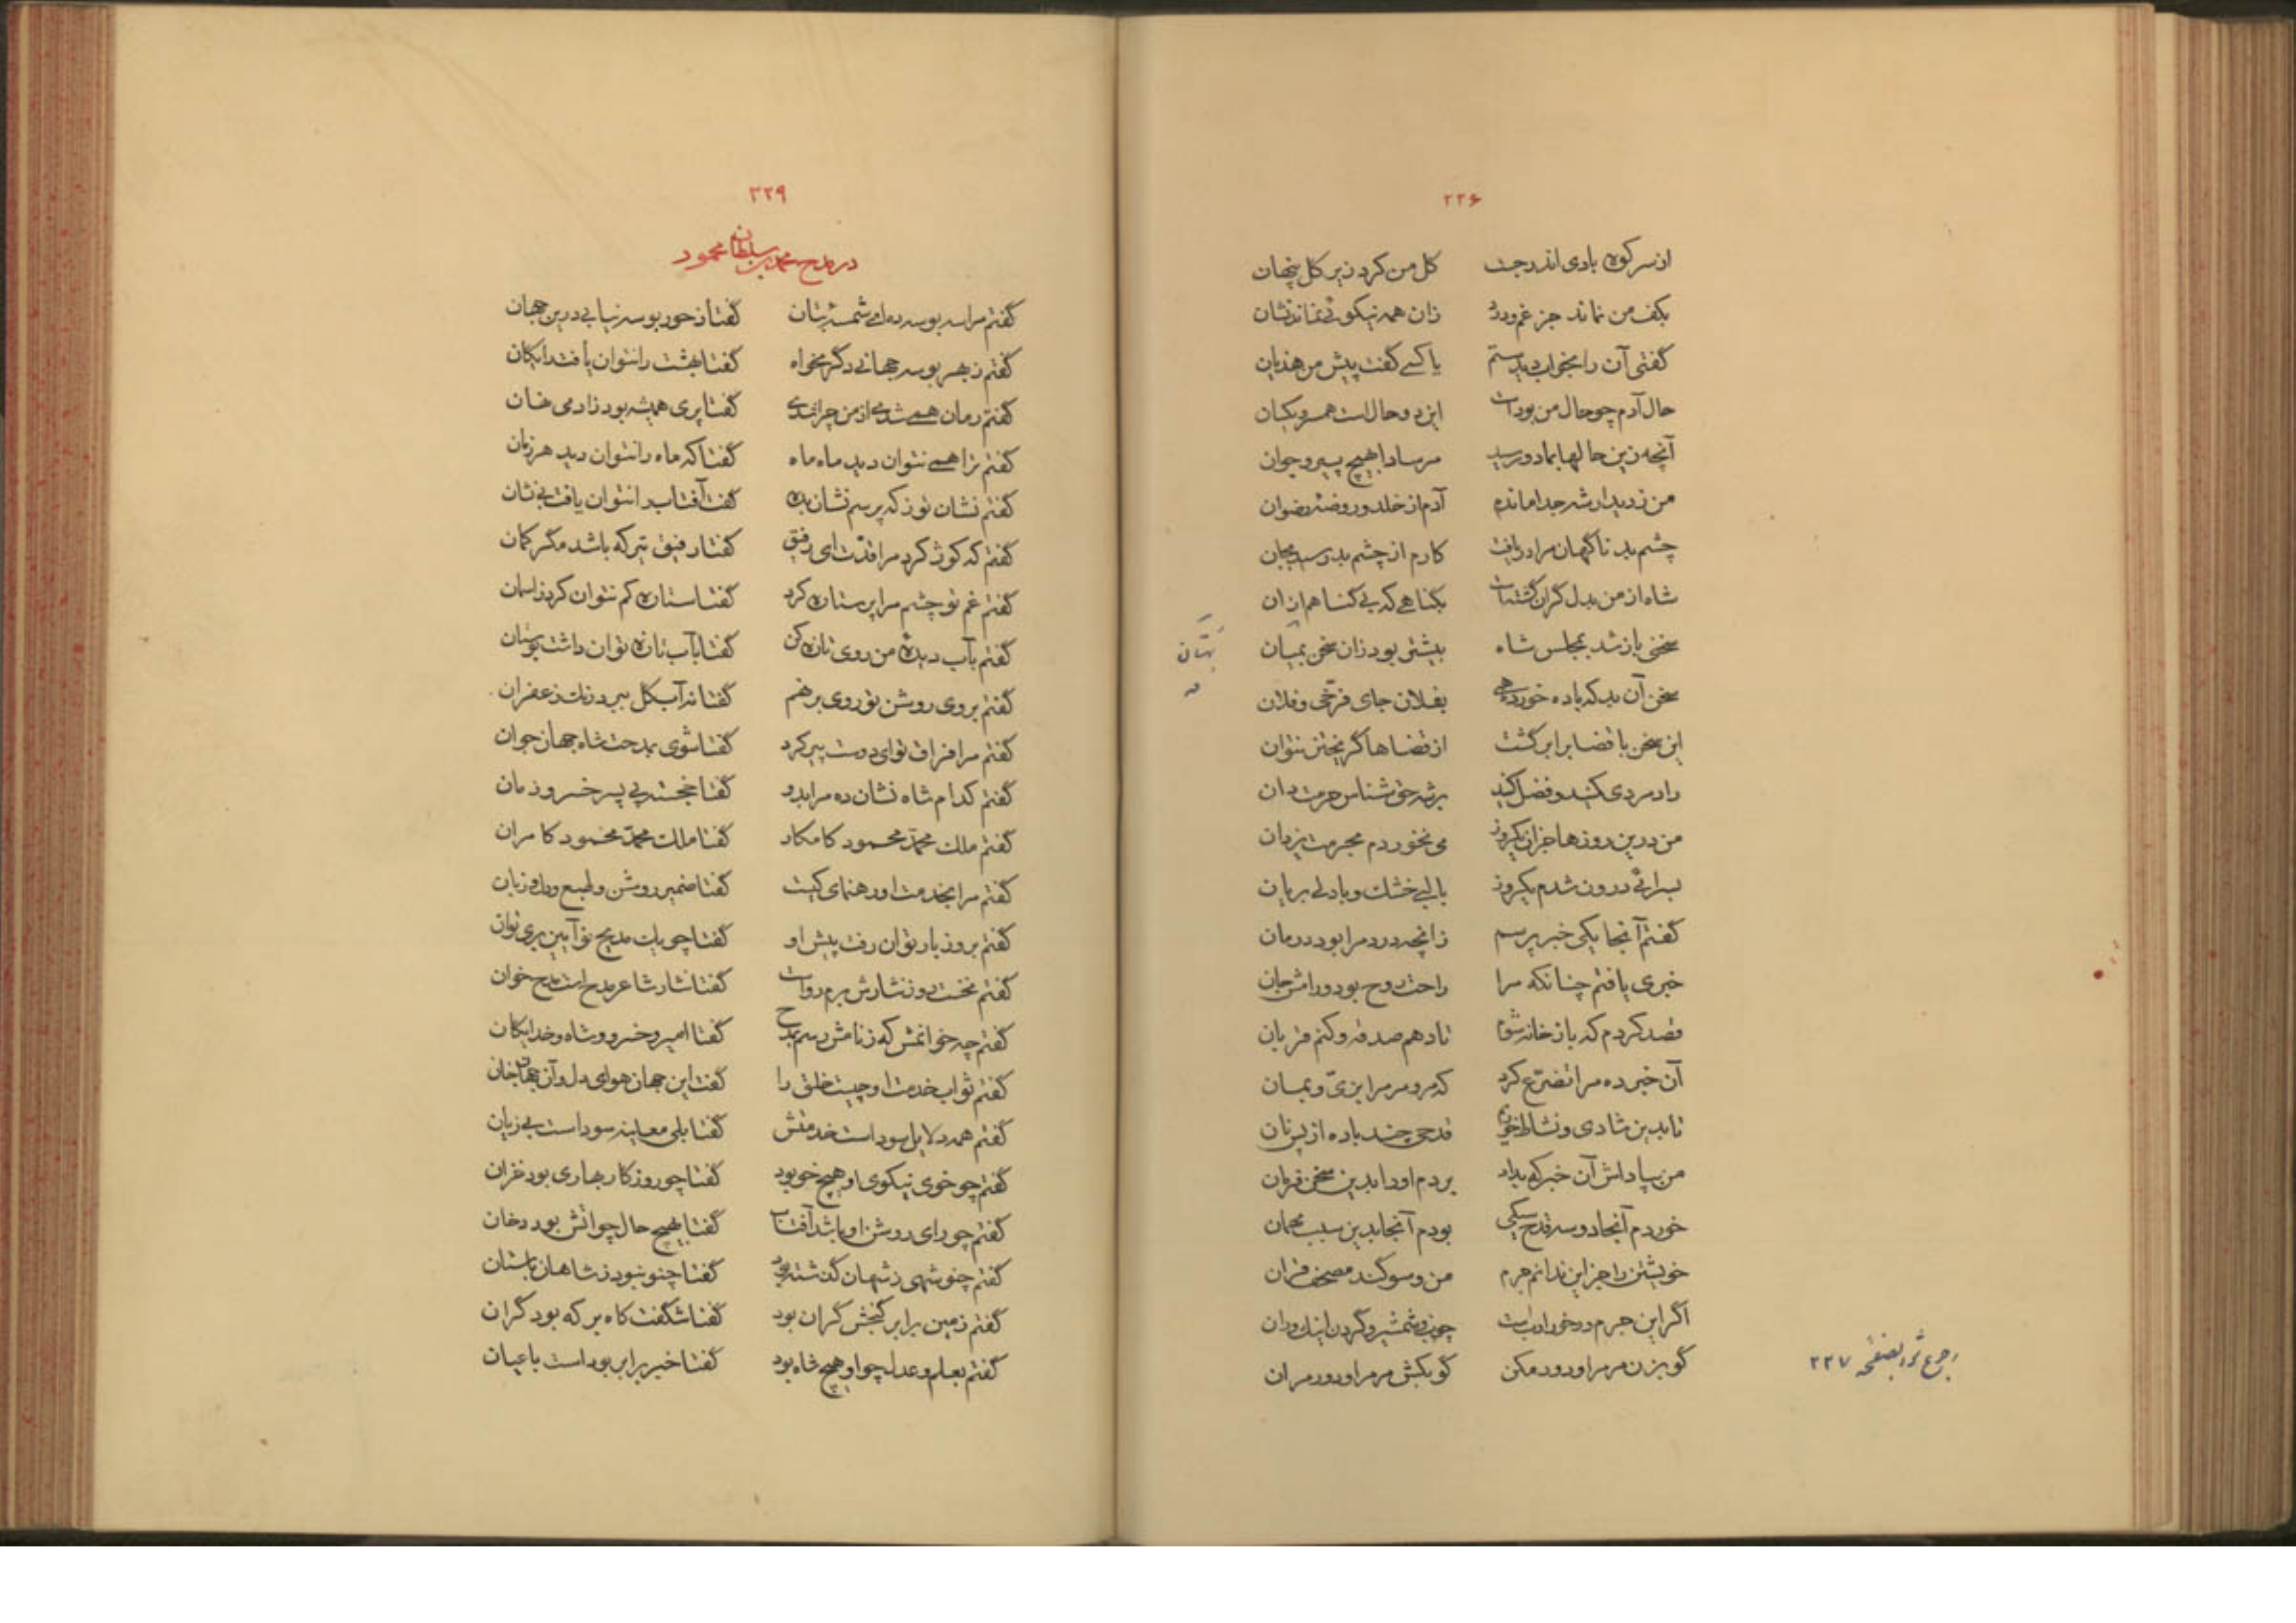 ۲۲۶
از سر کوه بادی اندر جست گل من کرد زیر گل پنهان
بکف من نماند جز غم و درد زان همه نیکوئی نماند نشان
گفتی آن را بخواب دیدستم یا کسی گفت پیش من هذیان
حال آدم چو حال من بودست این دو حال است همسر و یکسان
آنچه زین حالها بما دو رسید مرساد ابهیچ پیر و جوان
من ز دیدار شه جدا ماندم آدم از خلد و روضه رضوان
چشم بد ناگهان مرا دریافت کارم از چشم بد رسید بجان
شاه از من بدل گران گشتست بگناهی که بی گناهم از ان
سخنی باز شد بمجلس شاه بیشتر بود زان سخن بمیان
بهتان
سخن آن بد که باده خورده همی بفلان جای فرخی و فلان
این سخن با قضا برابر گشت از قضاها گریختن نتوان
راد مردی کنید و فضل کنید برشه حق شناس حرمت دان
من درین روزها جز آن یکروز می نخوردم بحرمت یزدان
بسرائی درون شدم یکروز با لبی خشک و با دلی بریان
گفتم آنجا یکی خبر پرسم زانچه درد مرا بود درمان
خبری یافتم چنانکه مرا راحت روح بود و رامش جان
قصد کردم که باز خانه شوم تا دهم صدقه و کنم قربان
آن خبر ده مرا تضرع کرد که مرو مر مرا بزی و بمان
تا بدین شادی و نشاط خوریم قدحی چند باده از پس نان
من بپاداش آن خبر که بداد بردم او را بدین سخن فرمان
خوردم آنجا دو سه قدح سیکی بودم آنجا بدین سبب مهمان
خویشتن را جز این ندانم جرم من و سوگند مصحف قران
اگر این جرم درخور ادبست چوب و شمشیر و گردن اینک و ران
گو بزن مر مرا و دور مکن گو بکش مر مرا و دور مران
رجوع شود بصفحه ۲۲۷
۲۲۹
در مدح محمد بن سلطان محمود
گفتم مرا سه بوسه ده ای شمسه بتان گفتا ز حور بوسه نیابی درین جهان
گفتم ز بهر بوسه جهانی دگر مخواه گفتا بهشت را نتوان یافت رایگان
گفتم زمان همی شدی از من چرا شدی گفتا پری همیشه بود زادمی نهان
گفتم ترا همی نتوان دید ماه ماه گفتا که ماه را نتوان دید هر زمان
گفتم نشان تو ز که پرسم نشان بده گفت آفتاب را نتوان یافت بی نشان
گفتم که کوژ کرد مرا قدت ای رفیق گفتا رفیق تیر که باشد مگر کمان
گفتم غم تو چشم مرا پر ستاره کرد گفتا ستاره کم نتوان کرد ز اسمان
گفتم بآب دیده من روی تازه کن گفتا بآب تازه توان داشت بوستان
گفتم بروی روشن تو روی برنهم گفتا نه آب گل ببرد رنگ زعفران
گفتم مرا فراق تو ای دوست پیر کرد گفتا شوی بمدحت شاه جهان جوان
گفتم کدام شاه نشان ده مرا بدو گفتا خجسته پی پسر خسرو زمان
گفتم ملک محمد محمود کامکار گفتا ملک محمد محمود کامران
گفتم مرا بخدمت او رهنمای کیست گفتا ضمیر روشن و طبع و دل و زبان
گفتم بروز بار توان رفت پیش او گفتا چو یک مدیح نو آیین بری توان
گفتم نخست روز نثارش برم رواست گفتا نثار شاعر مدح است مدح خوان
گفتم چه خوانمش که ز نامش رسم بمدح گفتا امیر و خسرو و شاه و خدایگان
گفتم ثواب خدمت او چیست خلق را گفت این جهان هوای دل و آن جهان جنان
گفتم همه دلایل سود است خدمتش گفتا بلی معاینه سود است بی زیان
گفتم چو خوی نیکوی او هیچ خو بود گفتا چو روزگار بهاری بود خزان
گفتم چو رای روشن او باشد آفتاب گفتا بهیچ حال چو آتش بود دخان
گفتم چنو شهی ز شهان گذشته بود گفتا چنو نبود ز شاهان باستان
گفتم زمین برابر گنجش گران بود گفتا شگفت کاه بر که بود گران
گفتم بعلم و عدل چو او هیچ شاه بود گفتا خبر برابر بوده است با عیان